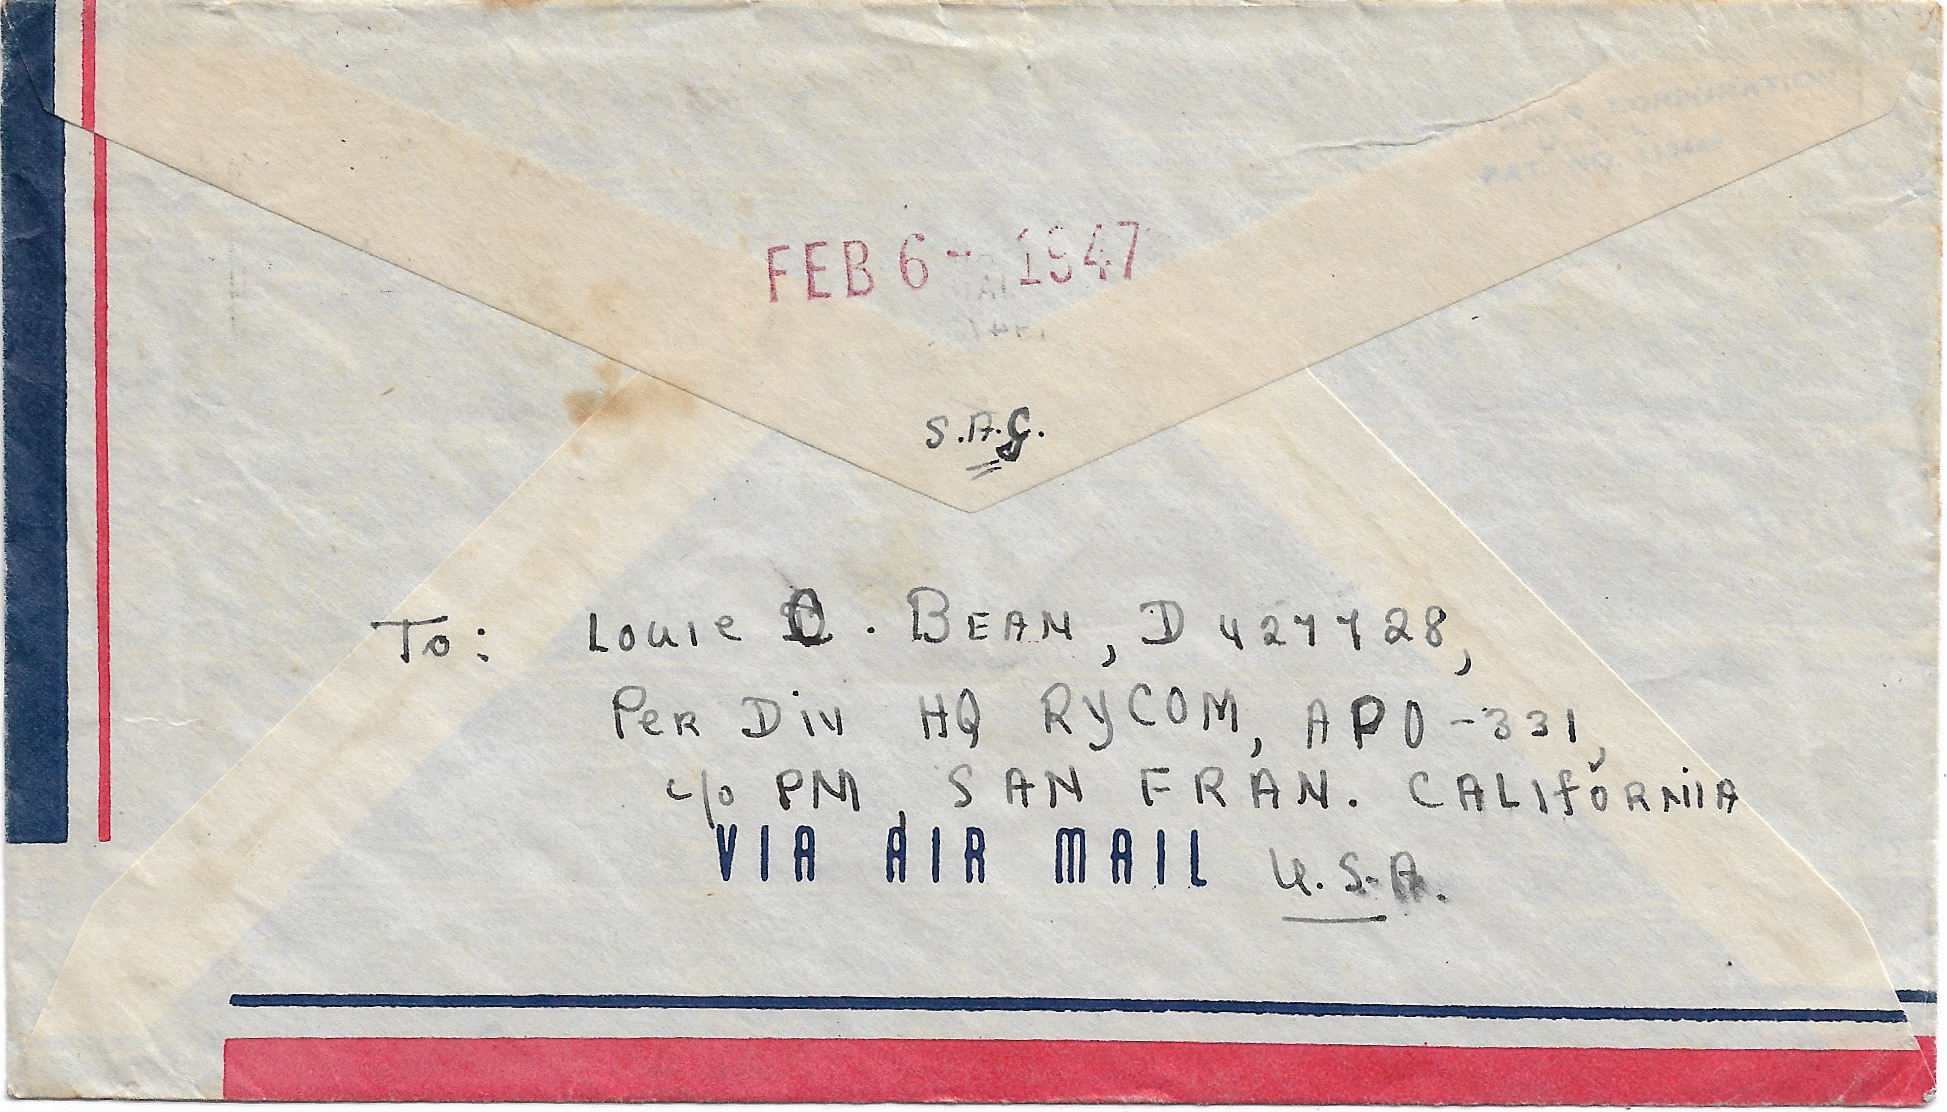 CORPORATION
PAT. NO.
FEB 6 - 1947
S.A.G.
To: Louie C. BEAN, D 427728,
Per Div HQ RYCOM, APO-331,
c/o PM, SAN FRAN. CALIFORNIA
VIA AIR MAIL U.S.A.